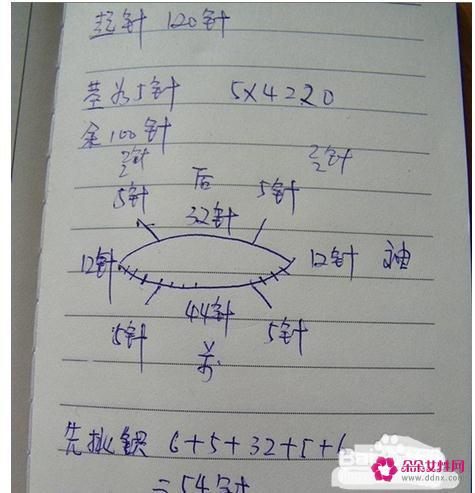 起针 120针
茎为5针 5×4=20
余100针
2针 2针
5针 后 5针
32针
12针 12针 袖
44针
5针 5针
先挑织 6+5+32+5+6
=54针
朵朵女性网
www.ddnx.com